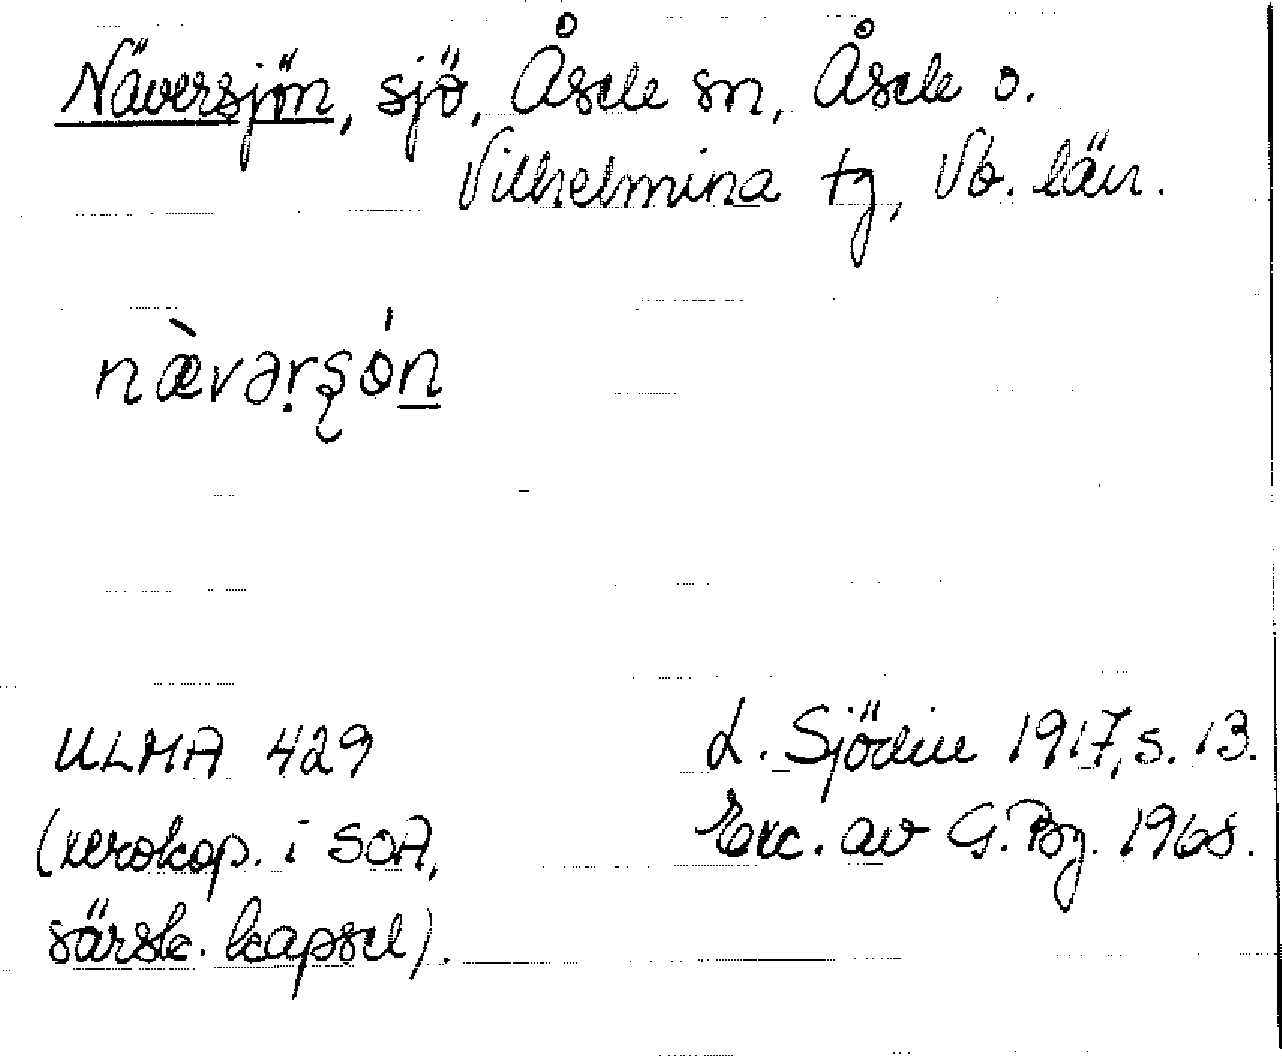 Näversjön, sjö, Åsele sn, Åsele o.
Vilhelmina tg, Vb. län.
næ̀vəṛʂón̲
ULMA 429
(xerokop. i SOA,
särsk. kapsel).
L. Sjödin 1917, s. 13.
Exc. av G. Bg. 1968.